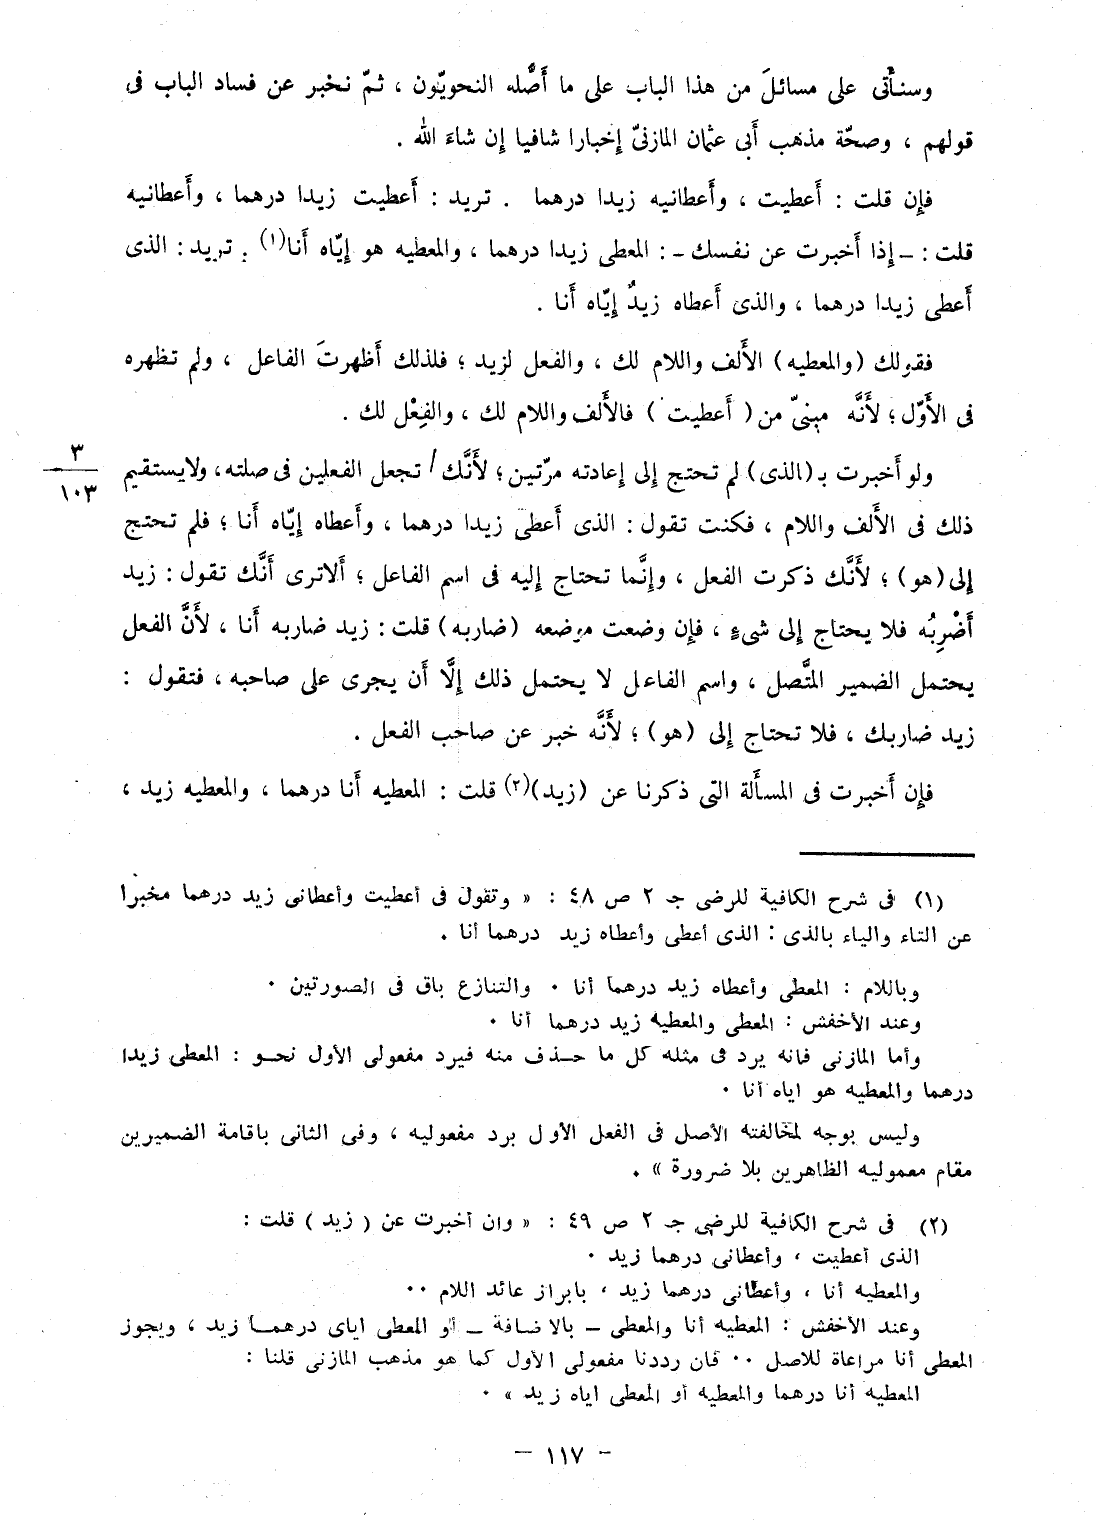 وسنأْتى على مسائلَ من هذا الباب على ما أَصَّله النحويّون ، ثمّ نخبر عن فساد الباب فى
قولهم ، وصحّة مذهب أَبى عثمان المازنىّ إخبارا شافيا إن شاءَ الله .
فإن قلت : أَعطيت ، وأَعطانيه زيدا درهما . تريد : أَعطيت زيدا درهما ، وأَعطانيه
قلت : ـ إذا أَخبرت عن نفسك ـ : المعطى زيدا درهما ، والمعطيه هو إيّاه أَنا(١) . تريد : الذى
أَعطى زيدا درهما ، والذى أَعطاه زيدٌ إيّاه أَنا .
فقولك (والمعطيه) الأَلف واللام لك ، والفعل لزيد ؛ فلذلك أَظهرتَ الفاعل ، ولم تظهره
فى الأَوّل ؛ لأَنَّه مبنىّ من ( أَعطيت ) فالأَلف واللام لك ، والفِعْل لك .
ولو أَخبرت بـ (الذى) لم تحتج إلى إعادته مرّتين ؛ لأَنَّك / تجعل الفعلين فى صلته، ولايستقيم
٣
١٠٣
ذلك فى الأَلف واللام ، فكنت تقول : الذى أَعطى زيدا درهما ، وأَعطاه إيّاه أَنا ؛ فلم تحتج
إلى (هو) ؛ لأَنَّك ذكرت الفعل ، وإنَّما تحتاج إليه فى اسم الفاعل ؛ أَلاترى أَنَّك تقول : زيد
أَضْرِبُه فلا يحتاج إلى شىءٍ ، فإن وضعت موضعه (ضاربه) قلت : زيد ضاربه أَنا ، لأَنَّ الفعل
يحتمل الضمير المتَّصل ، واسم الفاعل لا يحتمل ذلك إلَّا أَن يجرى على صاحبه ، فتقول :
زيد ضاربك ، فلا تحتاج إلى (هو) ؛ لأَنَّه خبر عن صاحب الفعل .
فإن أَخبرت فى المسأَلة التى ذكرنا عن (زيد)(٢) قلت : المعطيه أَنا درهما ، والمعطيه زيد ،
(١) فى شرح الكافية للرضى جـ ٢ ص ٤٨ : « وتقول فى أعطيت وأعطانى زيد درهما مخبرا
عن التاء والياء بالذى : الذى أعطى وأعطاه زيد درهما أنا .
وباللام : المعطى وأعطاه زيد درهما أنا . والتنازع باق فى الصورتين .
وعند الأخفش : المعطى والمعطيه زيد درهما أنا .
وأما المازنى فانه يرد فى مثله كل ما حذف منه فيرد مفعولى الأول نحو : المعطى زيدا
درهما والمعطيه هو اياه أنا .
وليس بوجه لمخالفته الأصل فى الفعل الأول برد مفعوليه ، وفى الثانى باقامة الضميرين
مقام معموليه الظاهرين بلا ضرورة » .
(٢) فى شرح الكافية للرضى جـ ٢ ص ٤٩ : « وان أخبرت عن ( زيد ) قلت :
الذى أعطيت ، وأعطانى درهما زيد .
والمعطيه أنا ، وأعطانى درهما زيد ، بابراز عائد اللام ..
وعند الأخفش : المعطيه أنا والمعطى ـ بالاضافة ـ أو المعطى اياى درهما زيد ، ويجوز
المعطى أنا مراعاة للاصل .. فان رددنا مفعولى الأول كما هو مذهب المازنى قلنا :
المعطيه أنا درهما والمعطيه أو المعطى اياه زيد » .
- ١١٧ -